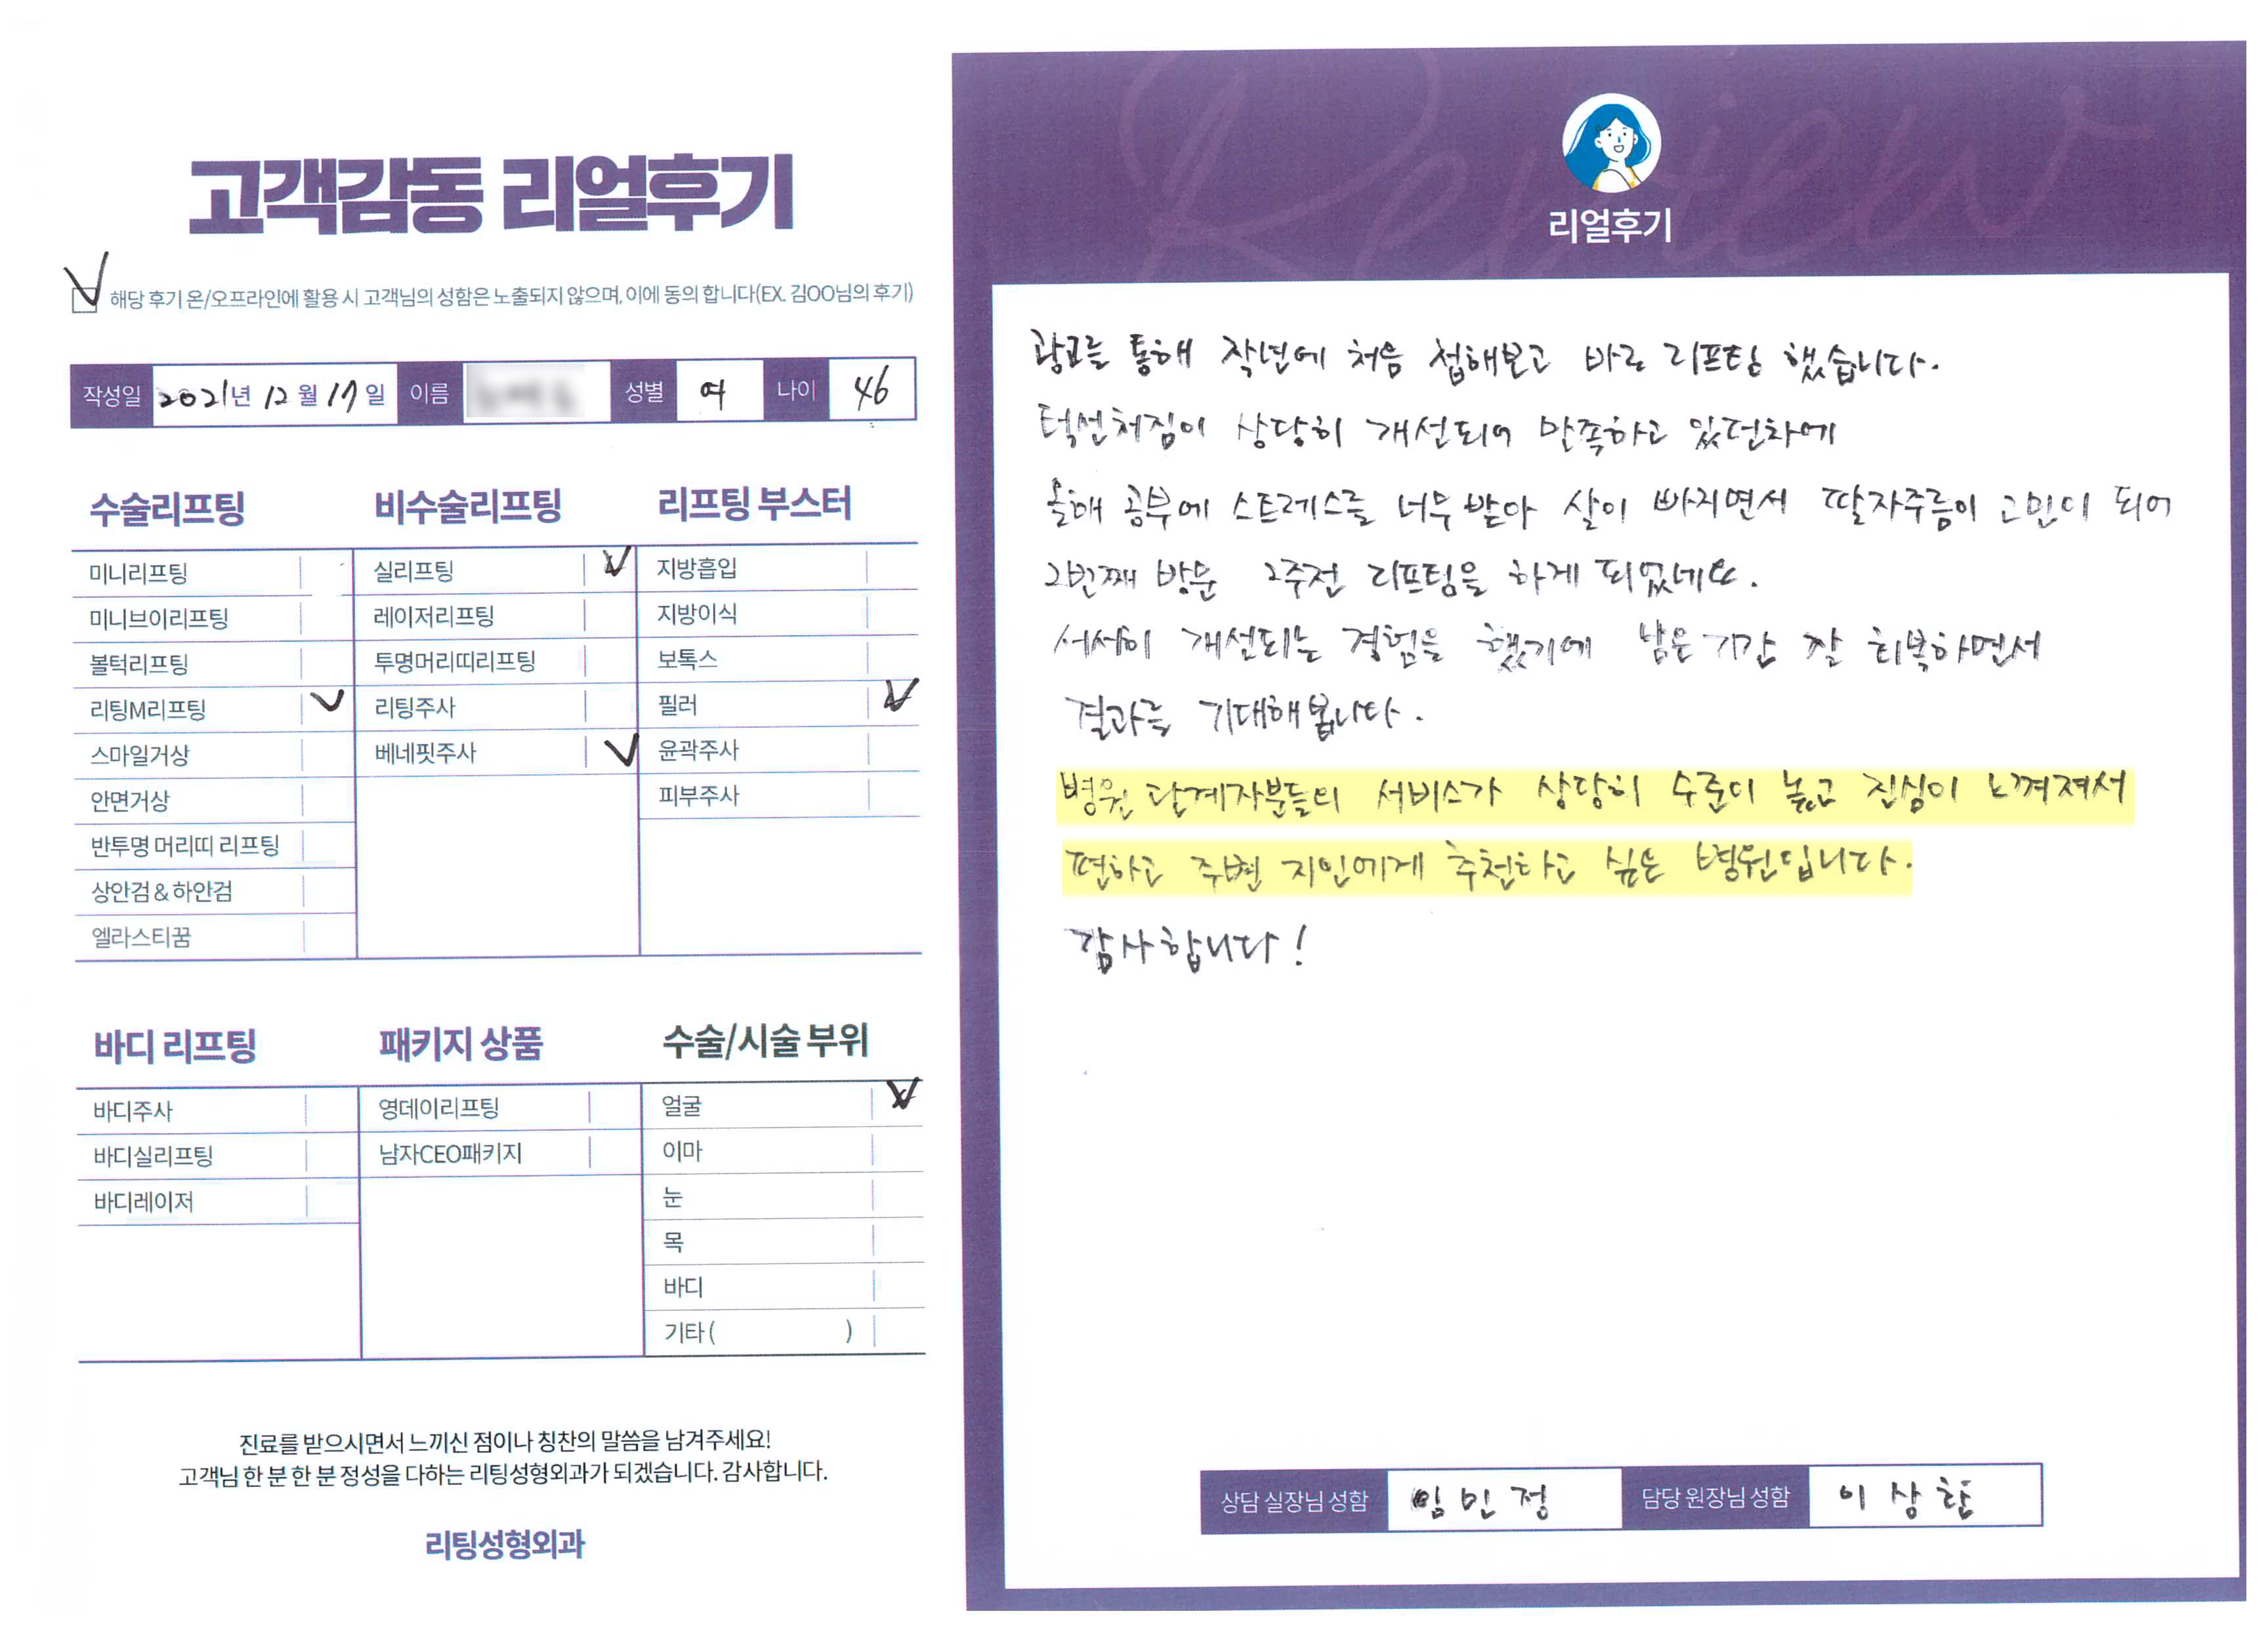 고객감동 리얼후기
해당 후기 온/오프라인에 활용 시 고객님의 성함은 노출되지 않으며, 이에 동의 합니다(EX. 김OO님의 후기)
작성일 2021년 12월 17일 이름 성별 여 나이 46
수술리프팅
미니리프팅
미니브이리프팅
볼턱리프팅
리팅M리프팅
스마일거상
안면거상
반투명 머리띠 리프팅
상안검&하안검
엘라스티꿈
비수술리프팅
실리프팅
레이저리프팅
투명머리띠리프팅
리팅주사
베네핏주사
리프팅 부스터
지방흡입
지방이식
보톡스
필러
윤곽주사
피부주사
바디 리프팅
바디주사
바디실리프팅
바디레이저
패키지 상품
영데이리프팅
남자CEO패키지
수술/시술 부위
얼굴
이마
눈
목
바디
기타 ( )
진료를 받으시면서 느끼신 점이나 칭찬의 말씀을 남겨주세요!
고객님 한 분 한 분 정성을 다하는 리팅성형외과가 되겠습니다. 감사합니다.
리팅성형외과
Review
리얼후기
광고를 통해 작년에 처음 접해보고 바로 리프팅 했습니다.
턱선처짐이 상당히 개선되어 만족하고 있던차에
올해 공부에 스트레스를 너무 받아 살이 빠지면서 팔자주름이 고민이 되어
2번째 방문 2주전 리프팅을 하게 되었네요.
서서히 개선되는 경험을 했기에 남은 기간 잘 회복하면서
결과를 기대해봅니다.
병원 관계자분들의 서비스가 상당히 수준이 높고 진심이 느껴져서
편하고 주변 지인에게 추천하고 싶은 병원입니다.
감사합니다!
상담 실장님 성함 임민정 담당 원장님 성함 이상환